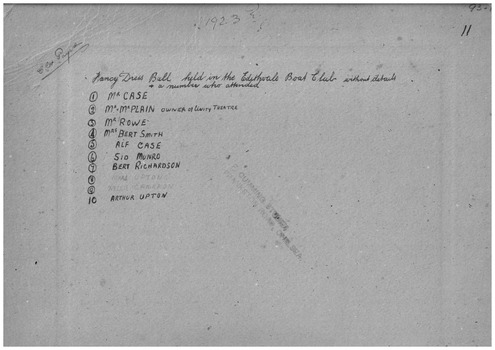 1923 ?
93-
11
Fancy Dress Ball held in the Edithvale Boat Club without details
& a number who attended
1 Mr CASE
2 Mr. McPLAIN OWNER of VANITY THEATRE
3 Mr ROWE
4 Mrs BERT SMITH
5 ALF CASE
6 SID MUNRO
7 BERT RICHARDSON
8 UPTON
9 CAMERON
10 ARTHUR UPTON
STUDIOS